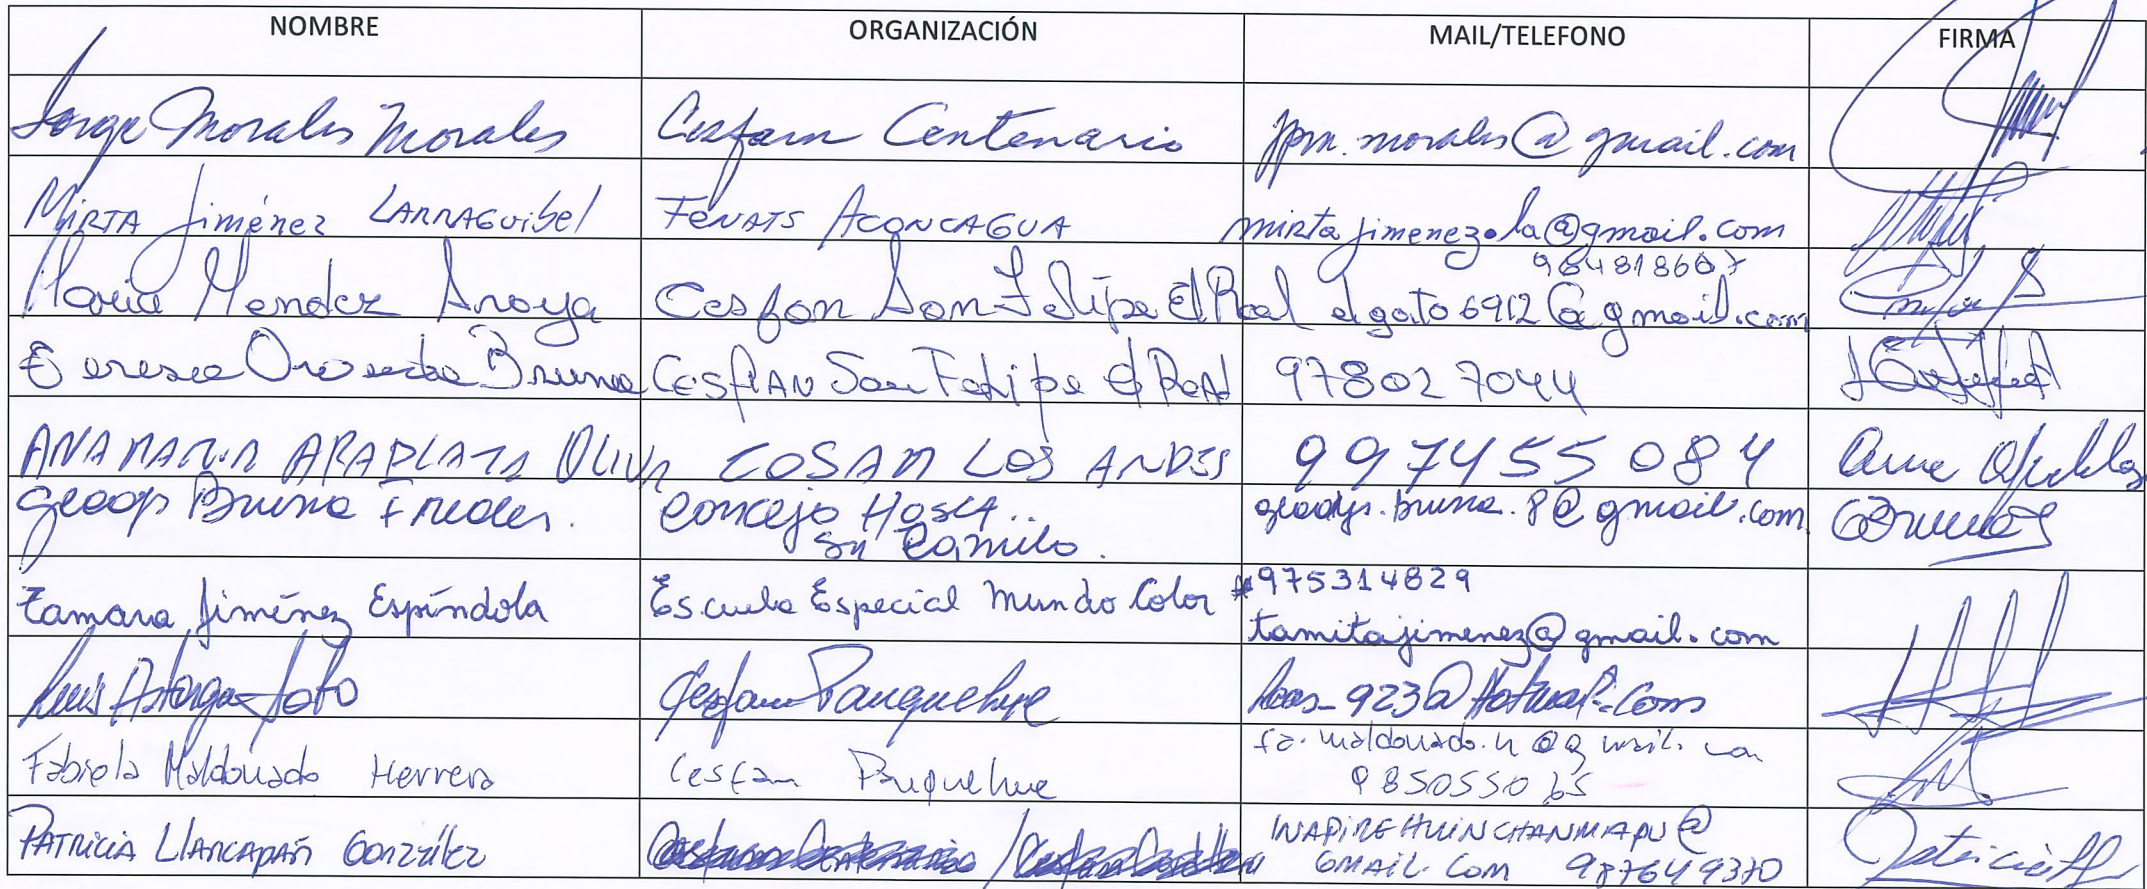 NOMBRE ORGANIZACIÓN MAIL/TELEFONO FIRMA
Jorge Morales Morales Cesfam Centenario jpm.morales@gmail.com
Mirta Jiménez Larraguibel Fenats Aconcagua mirtajimenez.la@gmail.com
964818607
Maria Mendez Aroya Cesfam San Felipe El Real elgato6912@gmail.com
Teresa Bruna Cesfam San Felipe el Real 978027044
ANA MARIA OLIVA COSAM LOS ANDES 997455084
Bruna Fredes. Concejo Hosp.. gladys.bruna.8@gmail.com
Sn Camilo.
Tamara Jiménez Espíndola Escuela Especial Mundo Color #975314829
tamitajimenez@gmail.com
Luis Astorga Soto Cesfam Panquehue 923@Hotmail.com
Fabiola Maldonado Herrera Cesfam Panquehue fa.maldonado.h@gmail.com
985055065
Patricia Llancapán González INAPIREHUINCHANMAPU@
GMAIL.COM 987649370